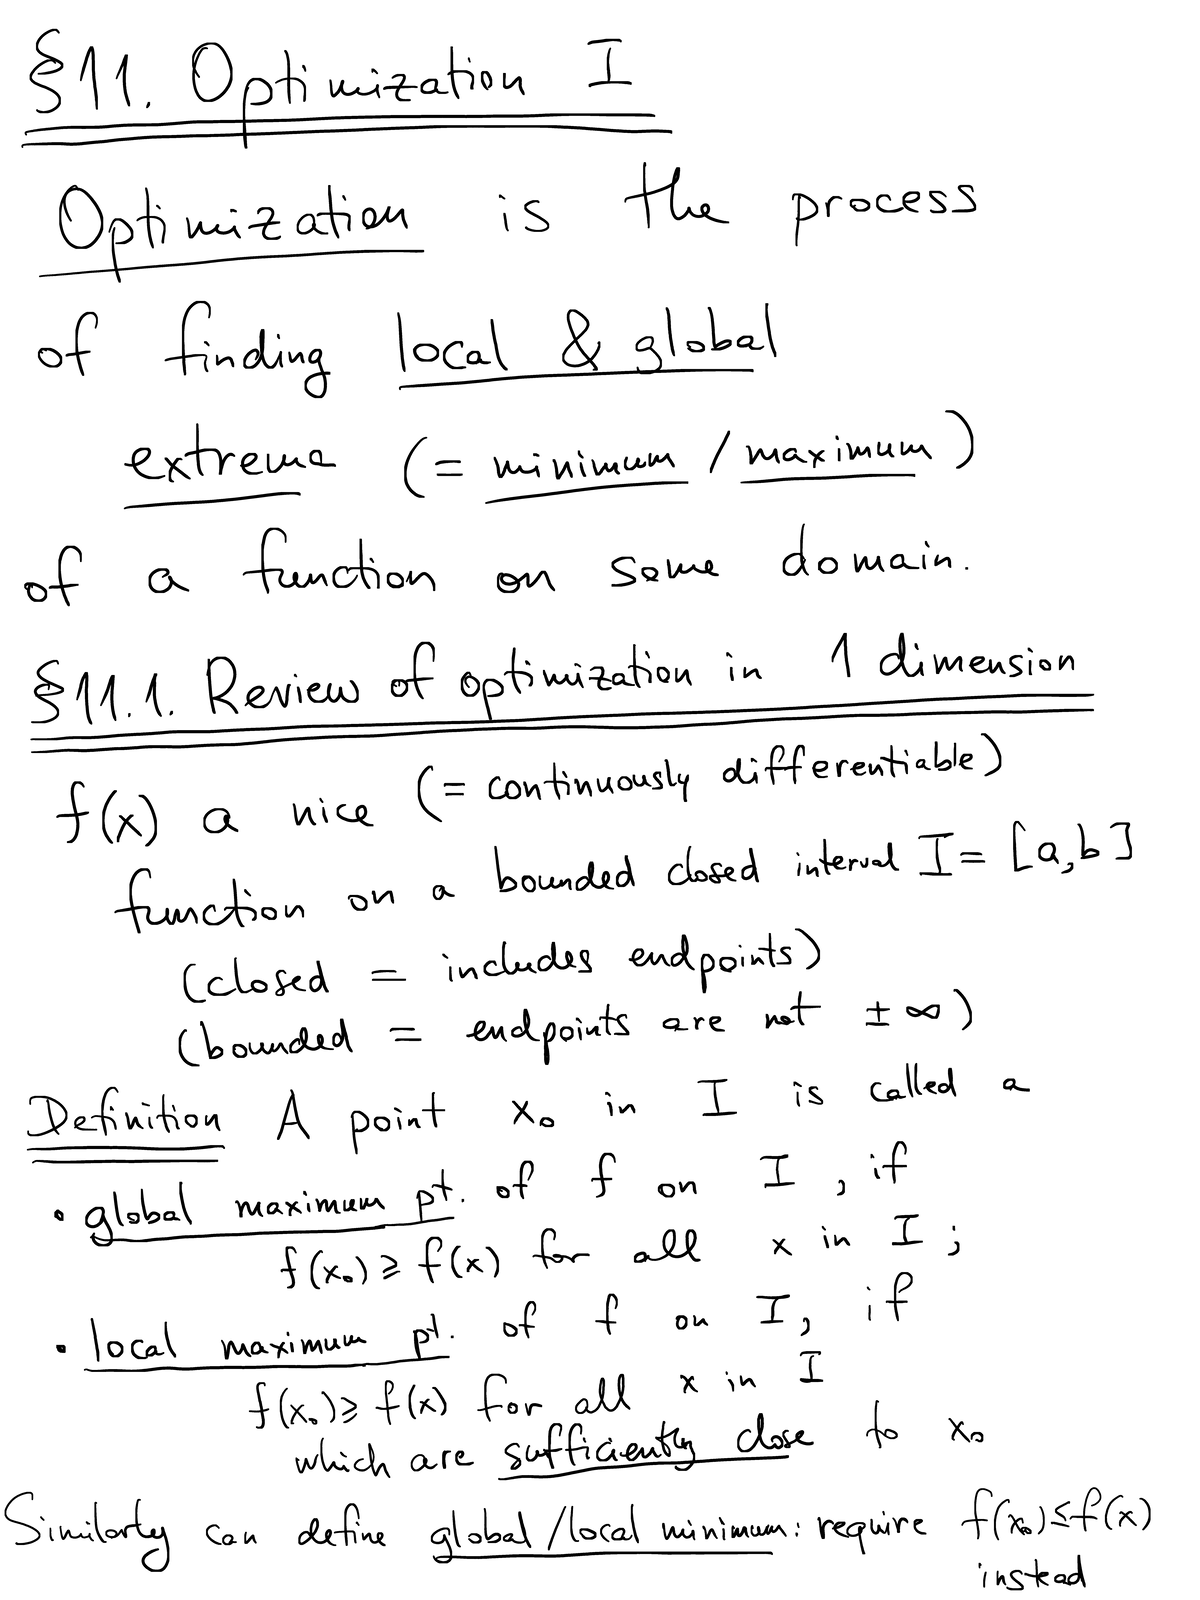 §11. Optimization I
Optimization is the process
of finding local & global
extrema (= minimum / maximum)
of a function on some domain.
§11.1. Review of optimization in 1 dimension
f(x) a nice (= continuously differentiable)
function on a bounded closed interval I = [a,b]
(closed = includes endpoints)
(bounded = endpoints are not ± ∞)
Definition A point x₀ in I is called a
• global maximum pt. of f on I, if
f(x₀) ⩾ f(x) for all x in I;
• local maximum pt. of f on I, if
f(x₀) ⩾ f(x) for all x in I
which are sufficiently close to x₀
Similarly can define global/local minimum: require f(x₀) ≤ f(x)
instead